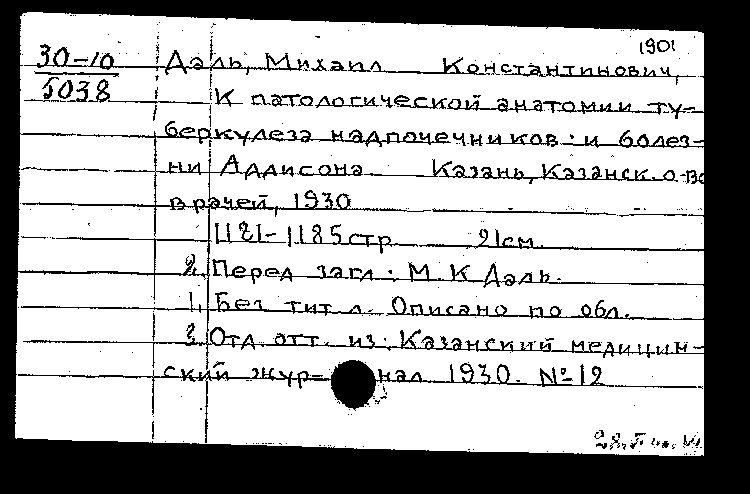 1901
30-10
5038
Даль, Михаил Константинович,
К патологической анатомии ту-
беркулеза надпочечников и болез-
ни Аддисона Казань, Казанск. о-во
врачей, 1930
1181-1185 стр. 21 см.
2. Перед загл.: М. К Даль.
1. Без тит л. Описано по обл.
3. Отд. отт. из: Казанский медицин-
ский жур- нал 1930. № 12